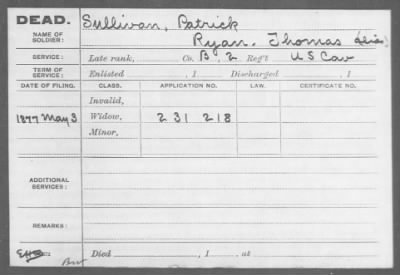 DEAD. Sullivan, Patrick
NAME OF SOLDIER: Ryan, Thomas (Alias)
SERVICE: Late rank, Co. B, 2 Reg't U S Cav
TERM OF SERVICE: Enlisted , 1 Discharged , 1
DATE OF FILING. CLASS. APPLICATION NO. LAW. CERTIFICATE NO.
Invalid,
1877 May 3 Widow, 231 218
Minor,
ADDITIONAL SERVICES:
REMARKS:
Died , 1 at